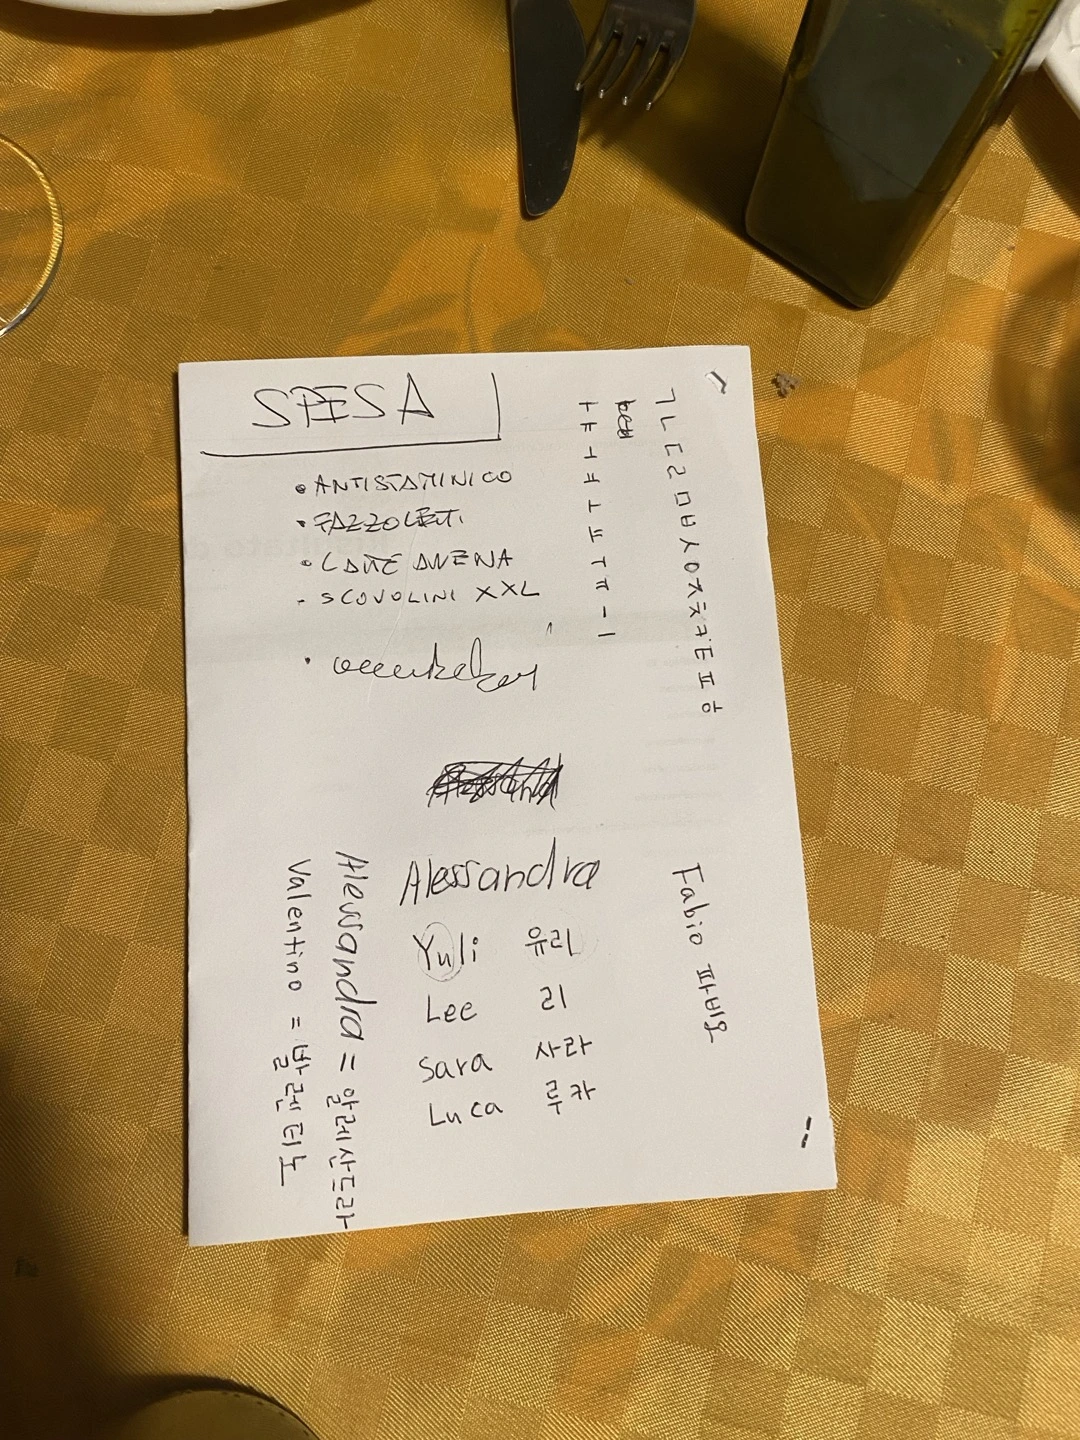 SPESA
• ANTISTAMINICO
• FAZZOLETTI
• LATTE AVENA
- SCOVOLINI XXL
ㄱㄴㄷㄹㅁㅂㅅㅇㅈㅊㅋㅌㅍㅎ
ㅏㅑㅓㅕㅗㅛㅜㅠㅡㅣ
Alessandra
Yuli 유리
Lee 리
Sara 사라
Luca 루카
Fabio 파비오
Alessandra = 알레산드라
Valentino = 발렌티노